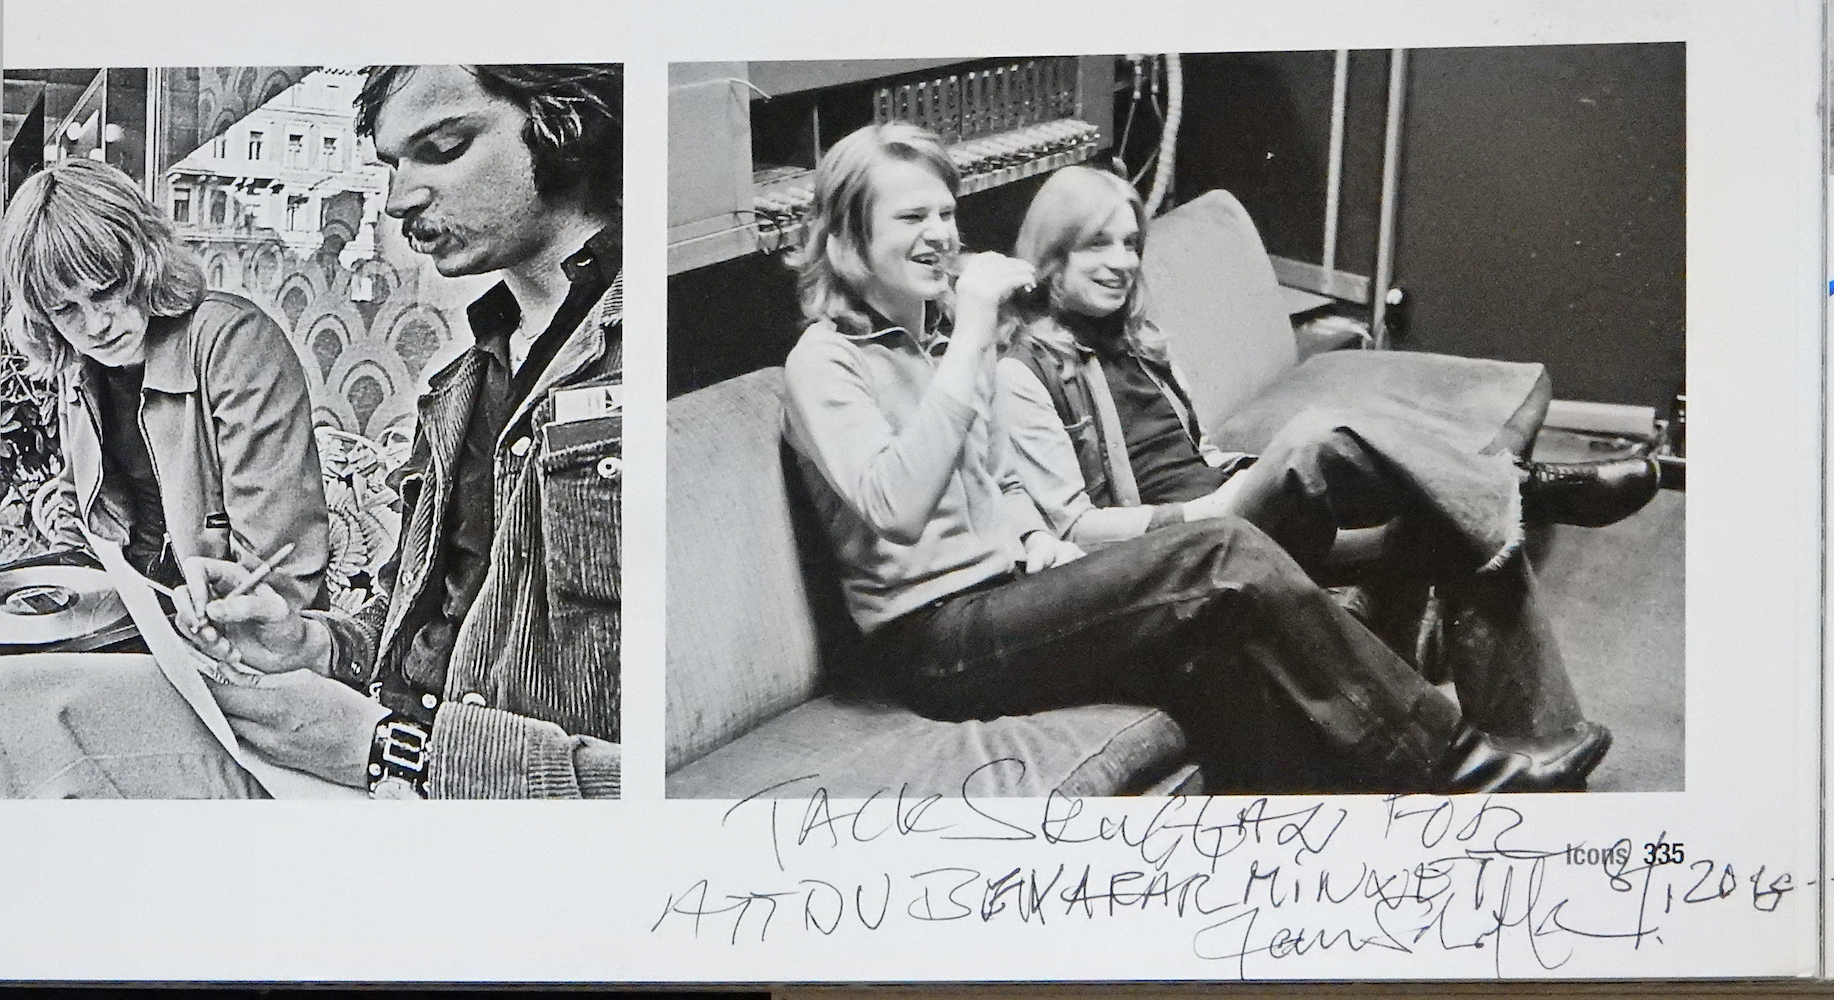 TACK SKUGGAN FÖR
Icons 335
ATT DU BEVARAR MINNET 8/1, 20